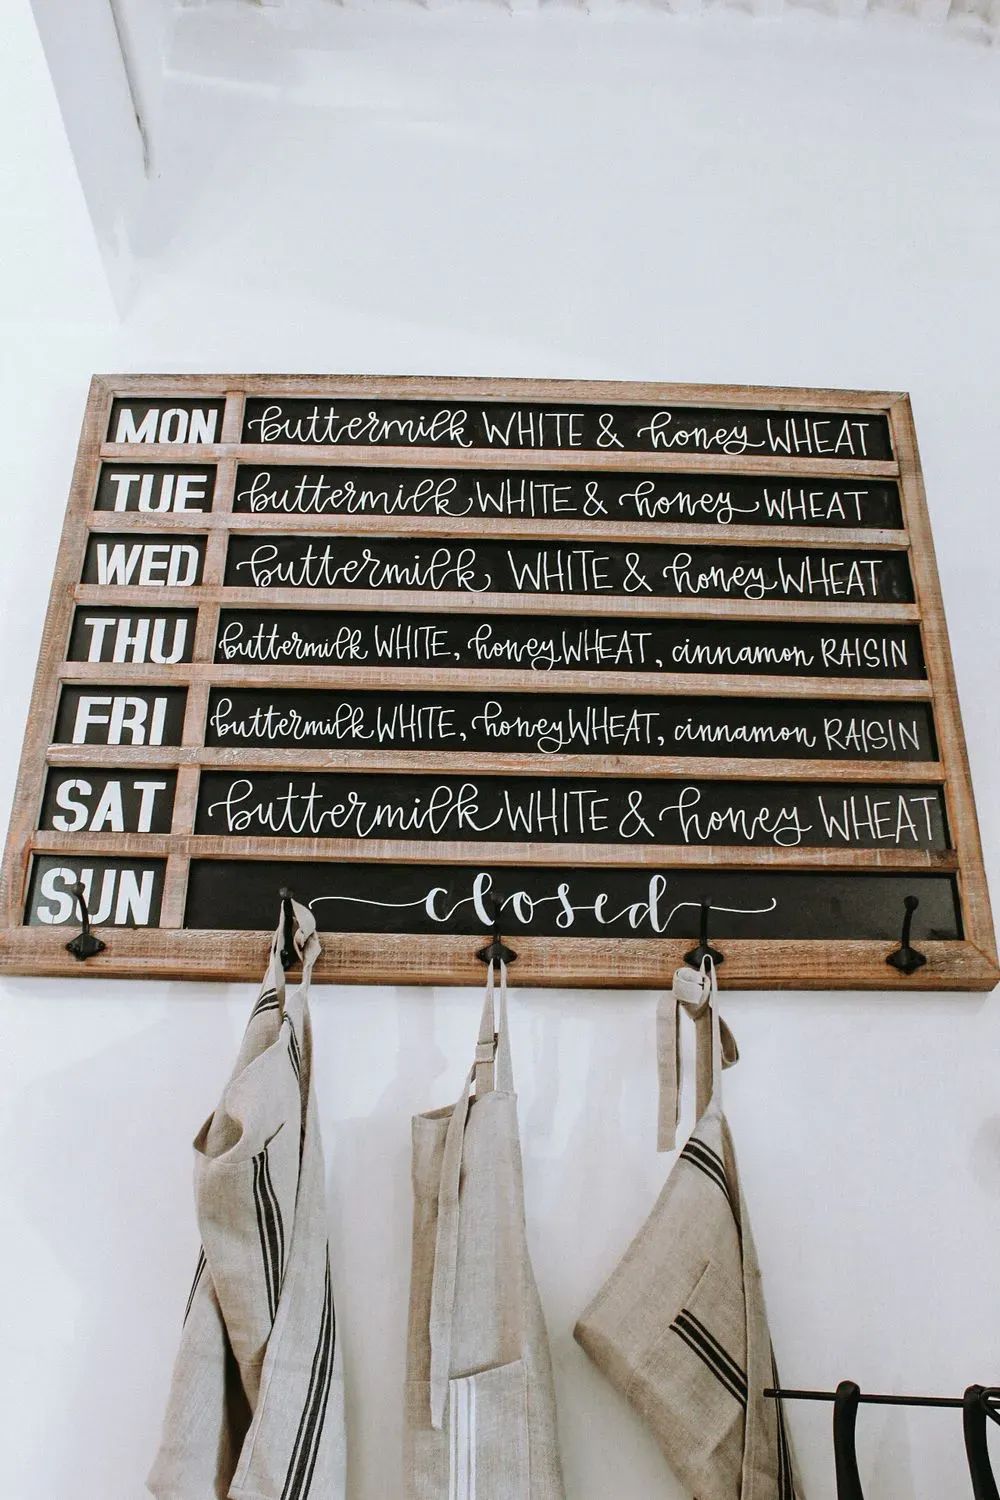 MON buttermilk WHITE & honey WHEAT
TUE buttermilk WHITE & honey WHEAT
WED buttermilk WHITE & honey WHEAT
THU buttermilk WHITE, honey WHEAT, cinnamon RAISIN
FRI buttermilk WHITE, honey WHEAT, cinnamon RAISIN
SAT buttermilk WHITE & honey WHEAT
SUN closed